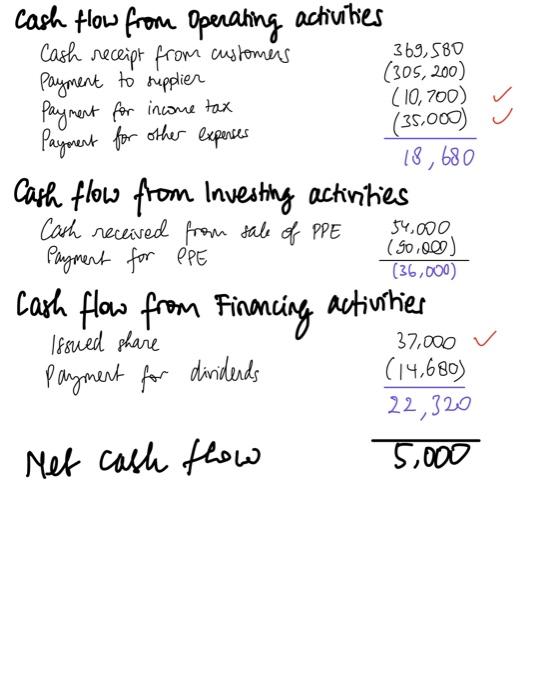 Cash flow from Operating activities
Cash receipt from customers 369,580
Payment to supplier (305,200)
Payment for income tax (10,700) ✓
Payment for other expenses (35,000) ✓
18,680
Cash flow from Investing activities
Cash received from sale of PPE 54,000
Payment for PPE (90,000)
(36,000)
Cash flow from Financing activities
Issued share 37,000 ✓
Payment for dividends (14,680)
22,320
Net cash flow 5,000